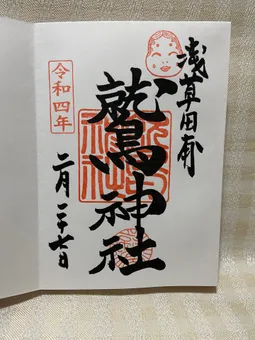 浅草田甫
鷲神社
令和四年
二月二十七日